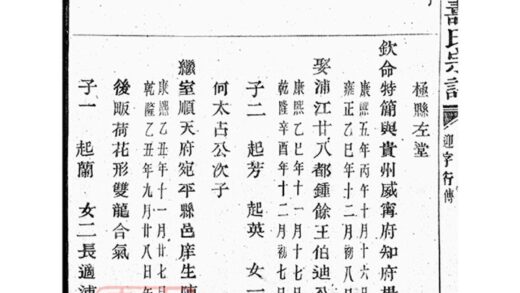 壽氏宗譜
迎字行傳
極縣左堂
欽命特簡與貴州威寧府知府掛
康熙五年丙午十月十六日
雍正乙巳年十二月初八日
娶浦江廿八都鍾餘王伯迪公
康熙乙巳年十一月十七日
乾隆辛酉年十二月初七日
子二 起芳 起英 女一
何太占公次子
繼室順天府宛平縣邑庠生陳
康熙乙丑年十一月廿七日
乾隆乙丑年九月廿八日午
後畈荷花形雙龍合氣
子一 起蘭 女二長適浦